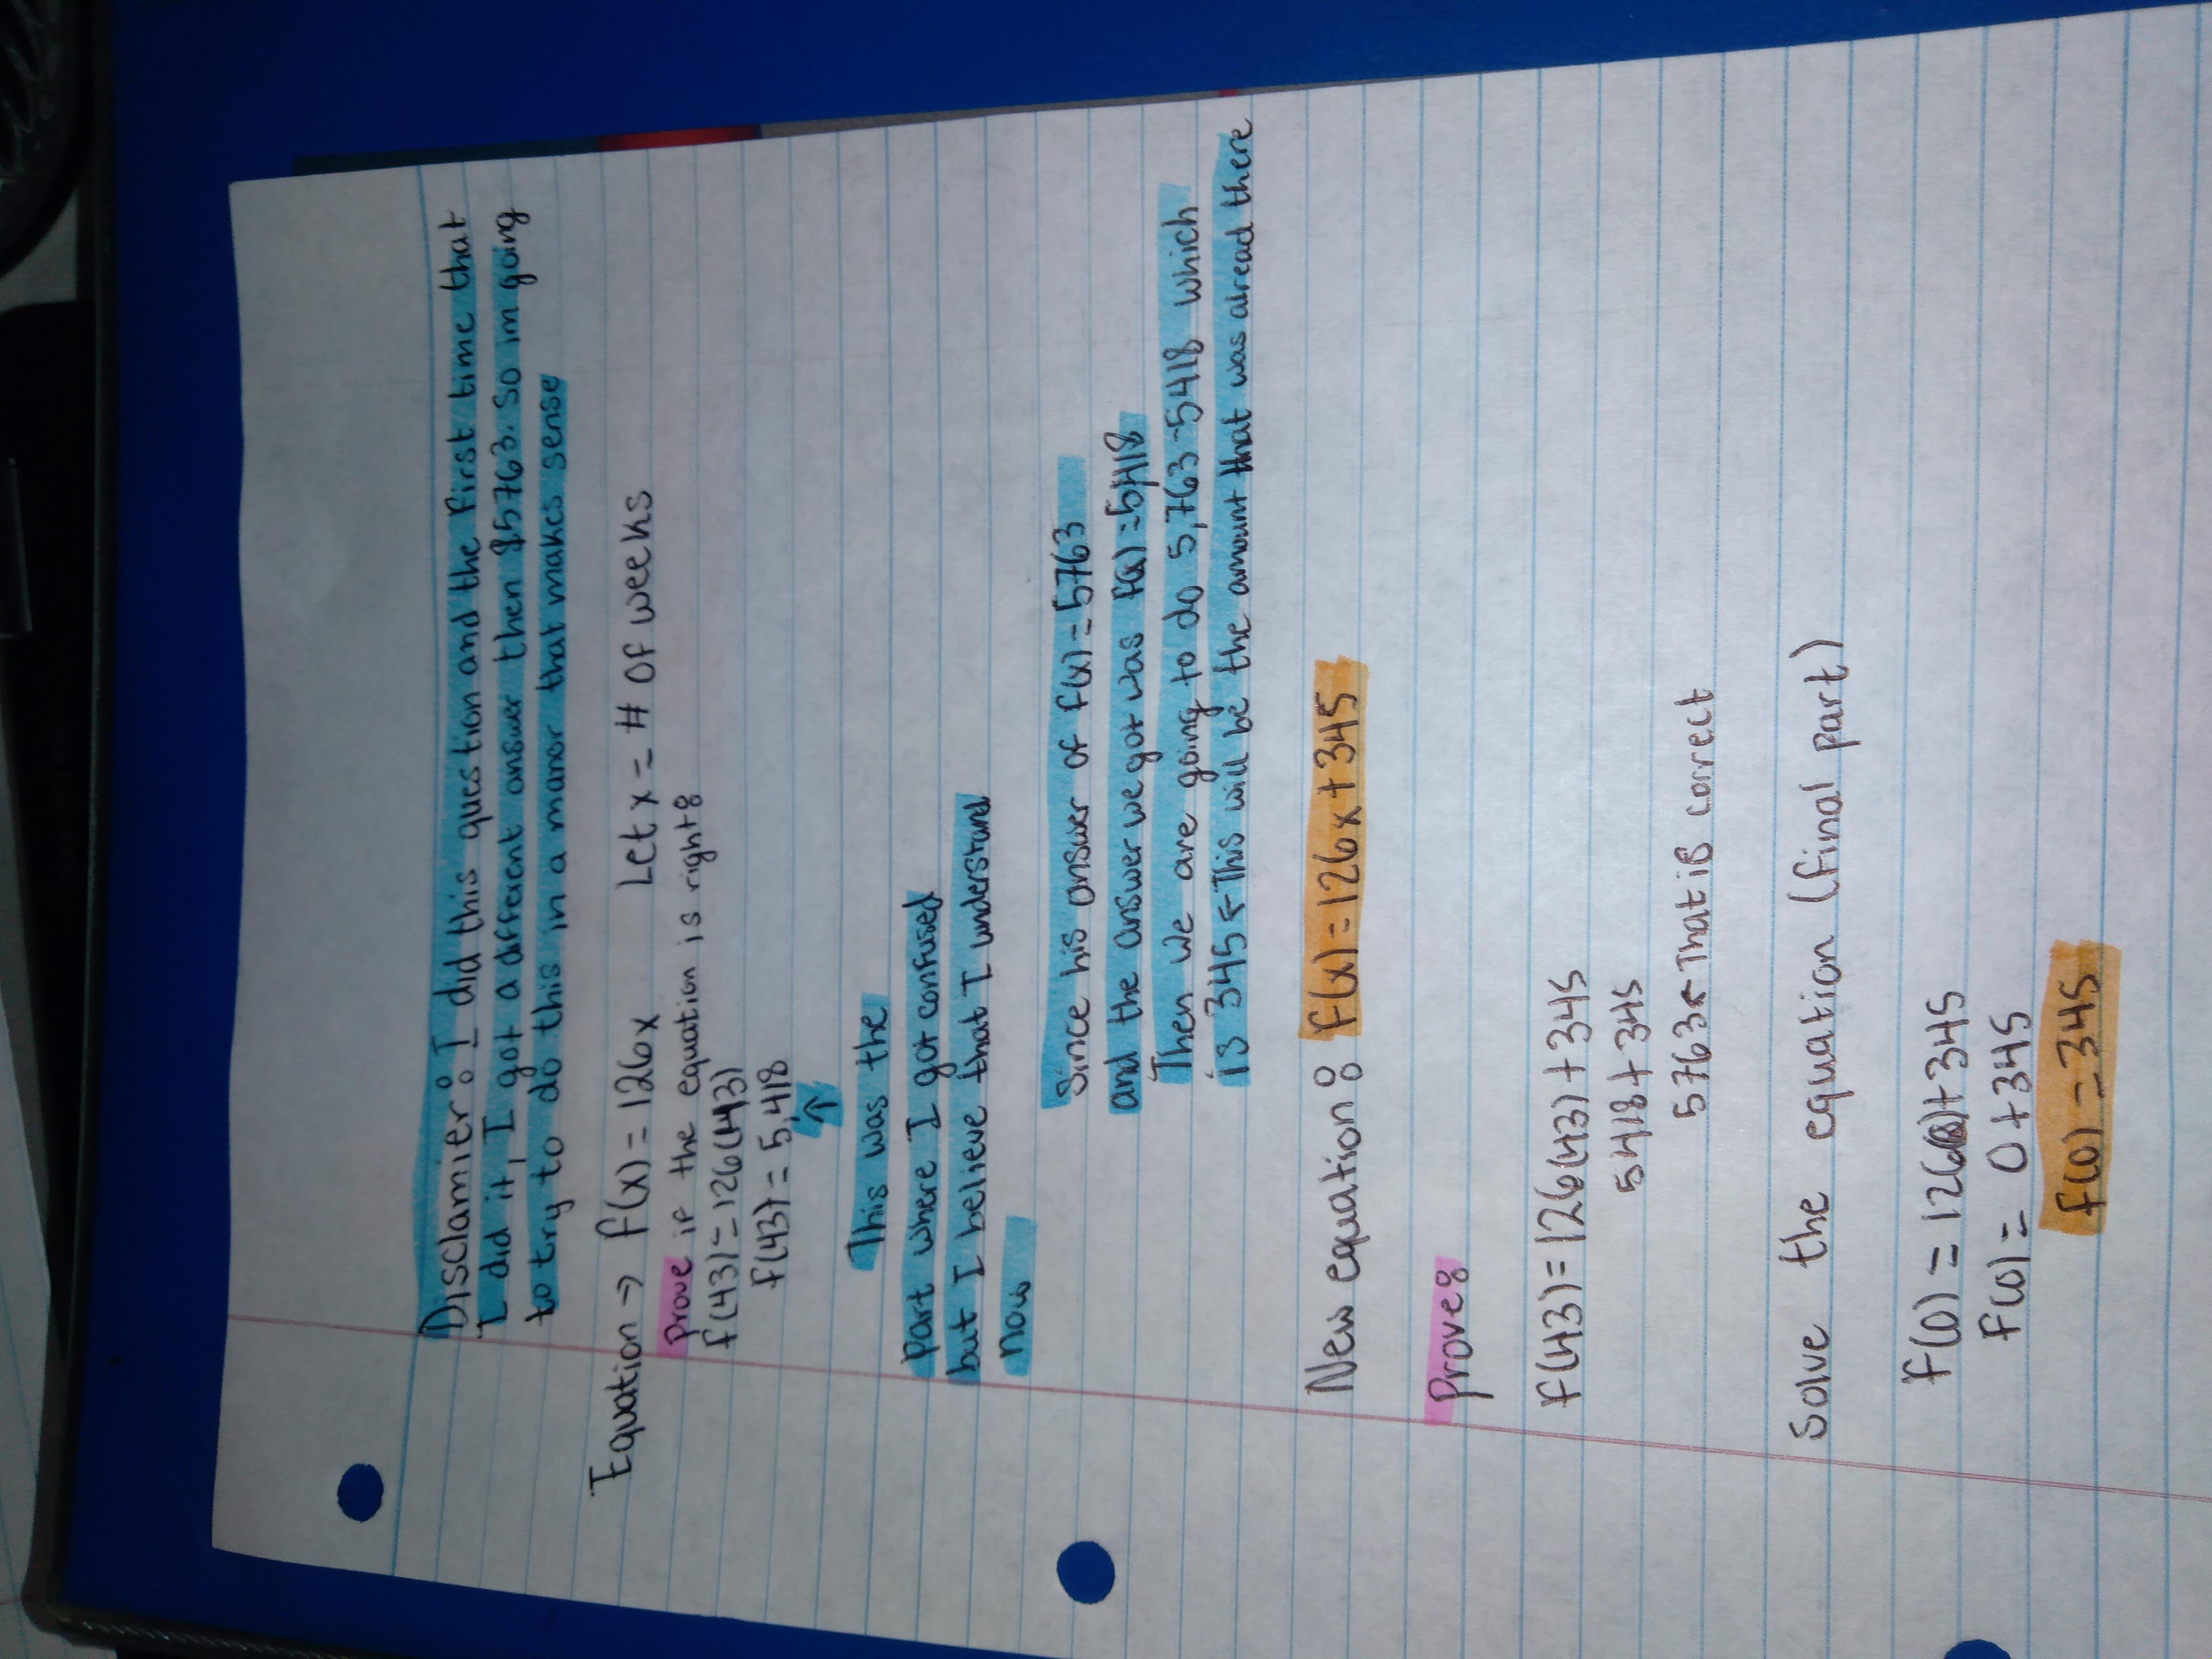 Disclamier: I did this question and the first time that
I did it, I got a different answer then $5763. So im going
to try to do this in a manor that makes sense
Equation → f(x) = 126x Let x = # of weeks
Prove if the equation is right:
f(43) = 126(43)
f(43) = 5,418
↑
This was the
part where I got confused
but I believe that I understand
now
Since his answer of f(x) = 5763
and the answer we got was f(x) = 5,418
Then we are going to do 5,763-5418 which
is 345 ← This will be the amount that was alread there
New equation: f(x) = 126x + 345
Prove:
f(43) = 126(43) + 345
5418 + 345
5763 ← That is correct
Solve the equation (final part)
f(0) = 126(0) + 345
f(0) = 0 + 345
f(0) = 345